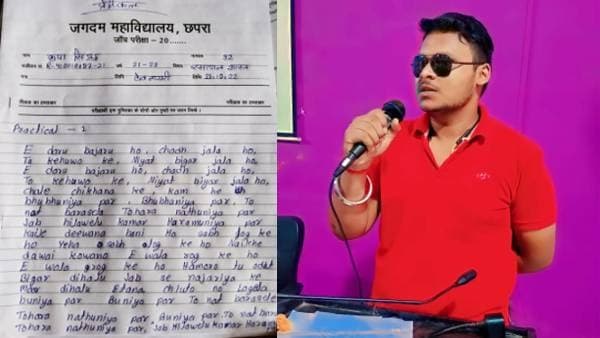 जगदम महाविद्यालय, छपरा
जाँच परीक्षा - 20.......
नाम
21-22
तिथि 22.12.22
परीक्षार्थी इस पुस्तिका के दोनों ओर
Practical - 1
E daru bajaru ho, chadh jala ho,
To kehuwo ke, Niyat bigar jala ho,
E daru bajaru ho, chadh jala ho,
To kehuwo ke, Niyat bigar jala ho,
Chale chikhana ke, kam he
bhubhuniya par, Bhubhaniya par. To
nat barasela Tohara nathuniya par
Sab hilawelu kamar Haramuniya par
Kaile deewana bani Ho sabh log ke
ho Yeha sabh log ke ho Naikhe
dawai kowano E wala rog ke ho
E wala rog ke ho Hamoro tu
Bigar dihalu Sab se najariya ke
Maar dihalu Etana chhuto na Logela
buniya par Buniya par To nat barasele
Tohara nathuniya par, Buniya par. To nat
Tohara nathuniya par, Sab Hilawelu Kamar